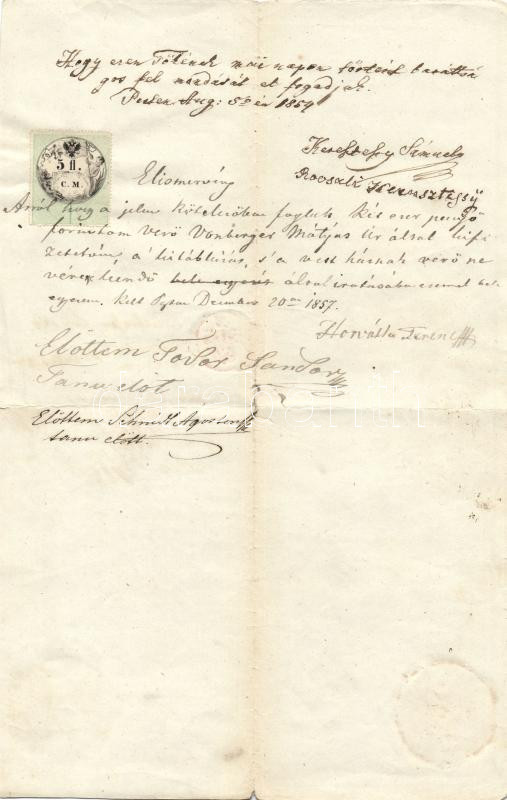 Hogy ezen Tőkének mái napon történt barátsá
gos fel mondását el fogadjuk.
Pesten Aug: 5én 1854
Keresztesy Sámuel
5 fl.
C. M.
Elismervény
Arról hogy a jelen Kötelezőben foglalt Két ezer pengő
forintom verő Vonberger Mátyás Úr által kifi
zetetvén, a kitáblázás, s'a vett háznak verő ne
vére leendő által iratásába ezennel bele
egyezem. Kelt Decembe 20án 1857.
Horváth Ferenc
Előttem Fodor Sándor
Tanu előt
Előttem Schmidt Agoston
tanu előtt.